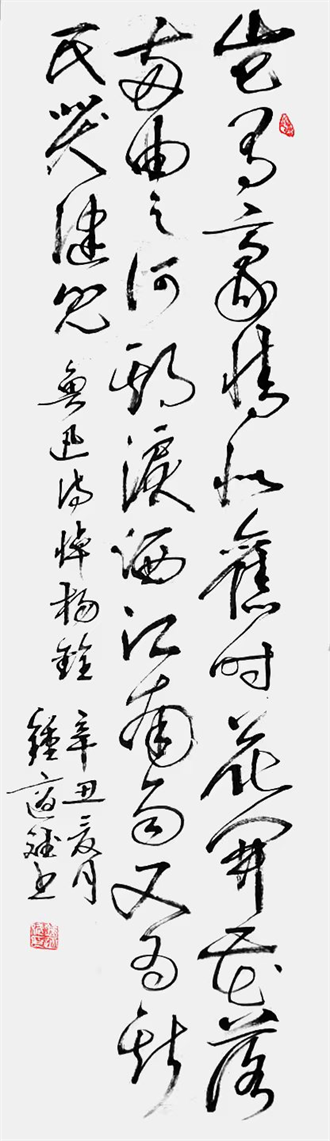 豈有豪情似舊时花開花落
兩由之何期淚洒江南雨又為斯
民哭健兒 魯迅詩悼楊銓
辛丑夏月
鍾